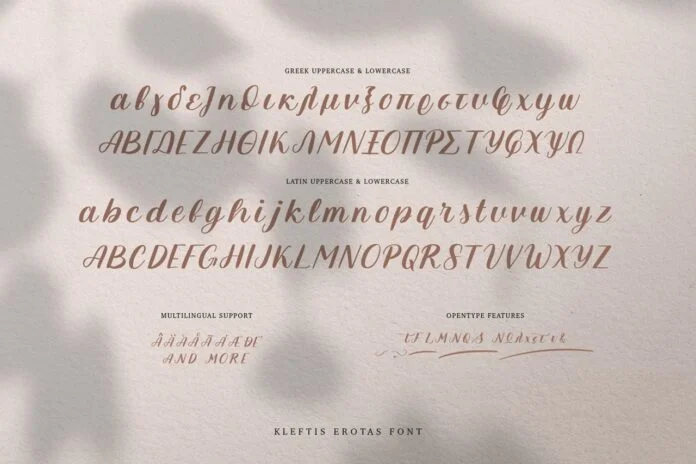 GREEK UPPERCASE & LOWERCASE
αβγδεζηθικλμνξοπρςστυφχψω
ΑΒΓΔΕΖΗΘΙΚΛΜΝΞΟΠΡΣΤΥΦΧΨΩ
LATIN UPPERCASE & LOWERCASE
abcdefghijklmnopqrstuvwxyz
ABCDEFGHIJKLMNOPQRSTUVWXYZ
MULTILINGUAL SUPPORT
AND MORE
OPENTYPE FEATURES
KLEFTIS EROTAS FONT